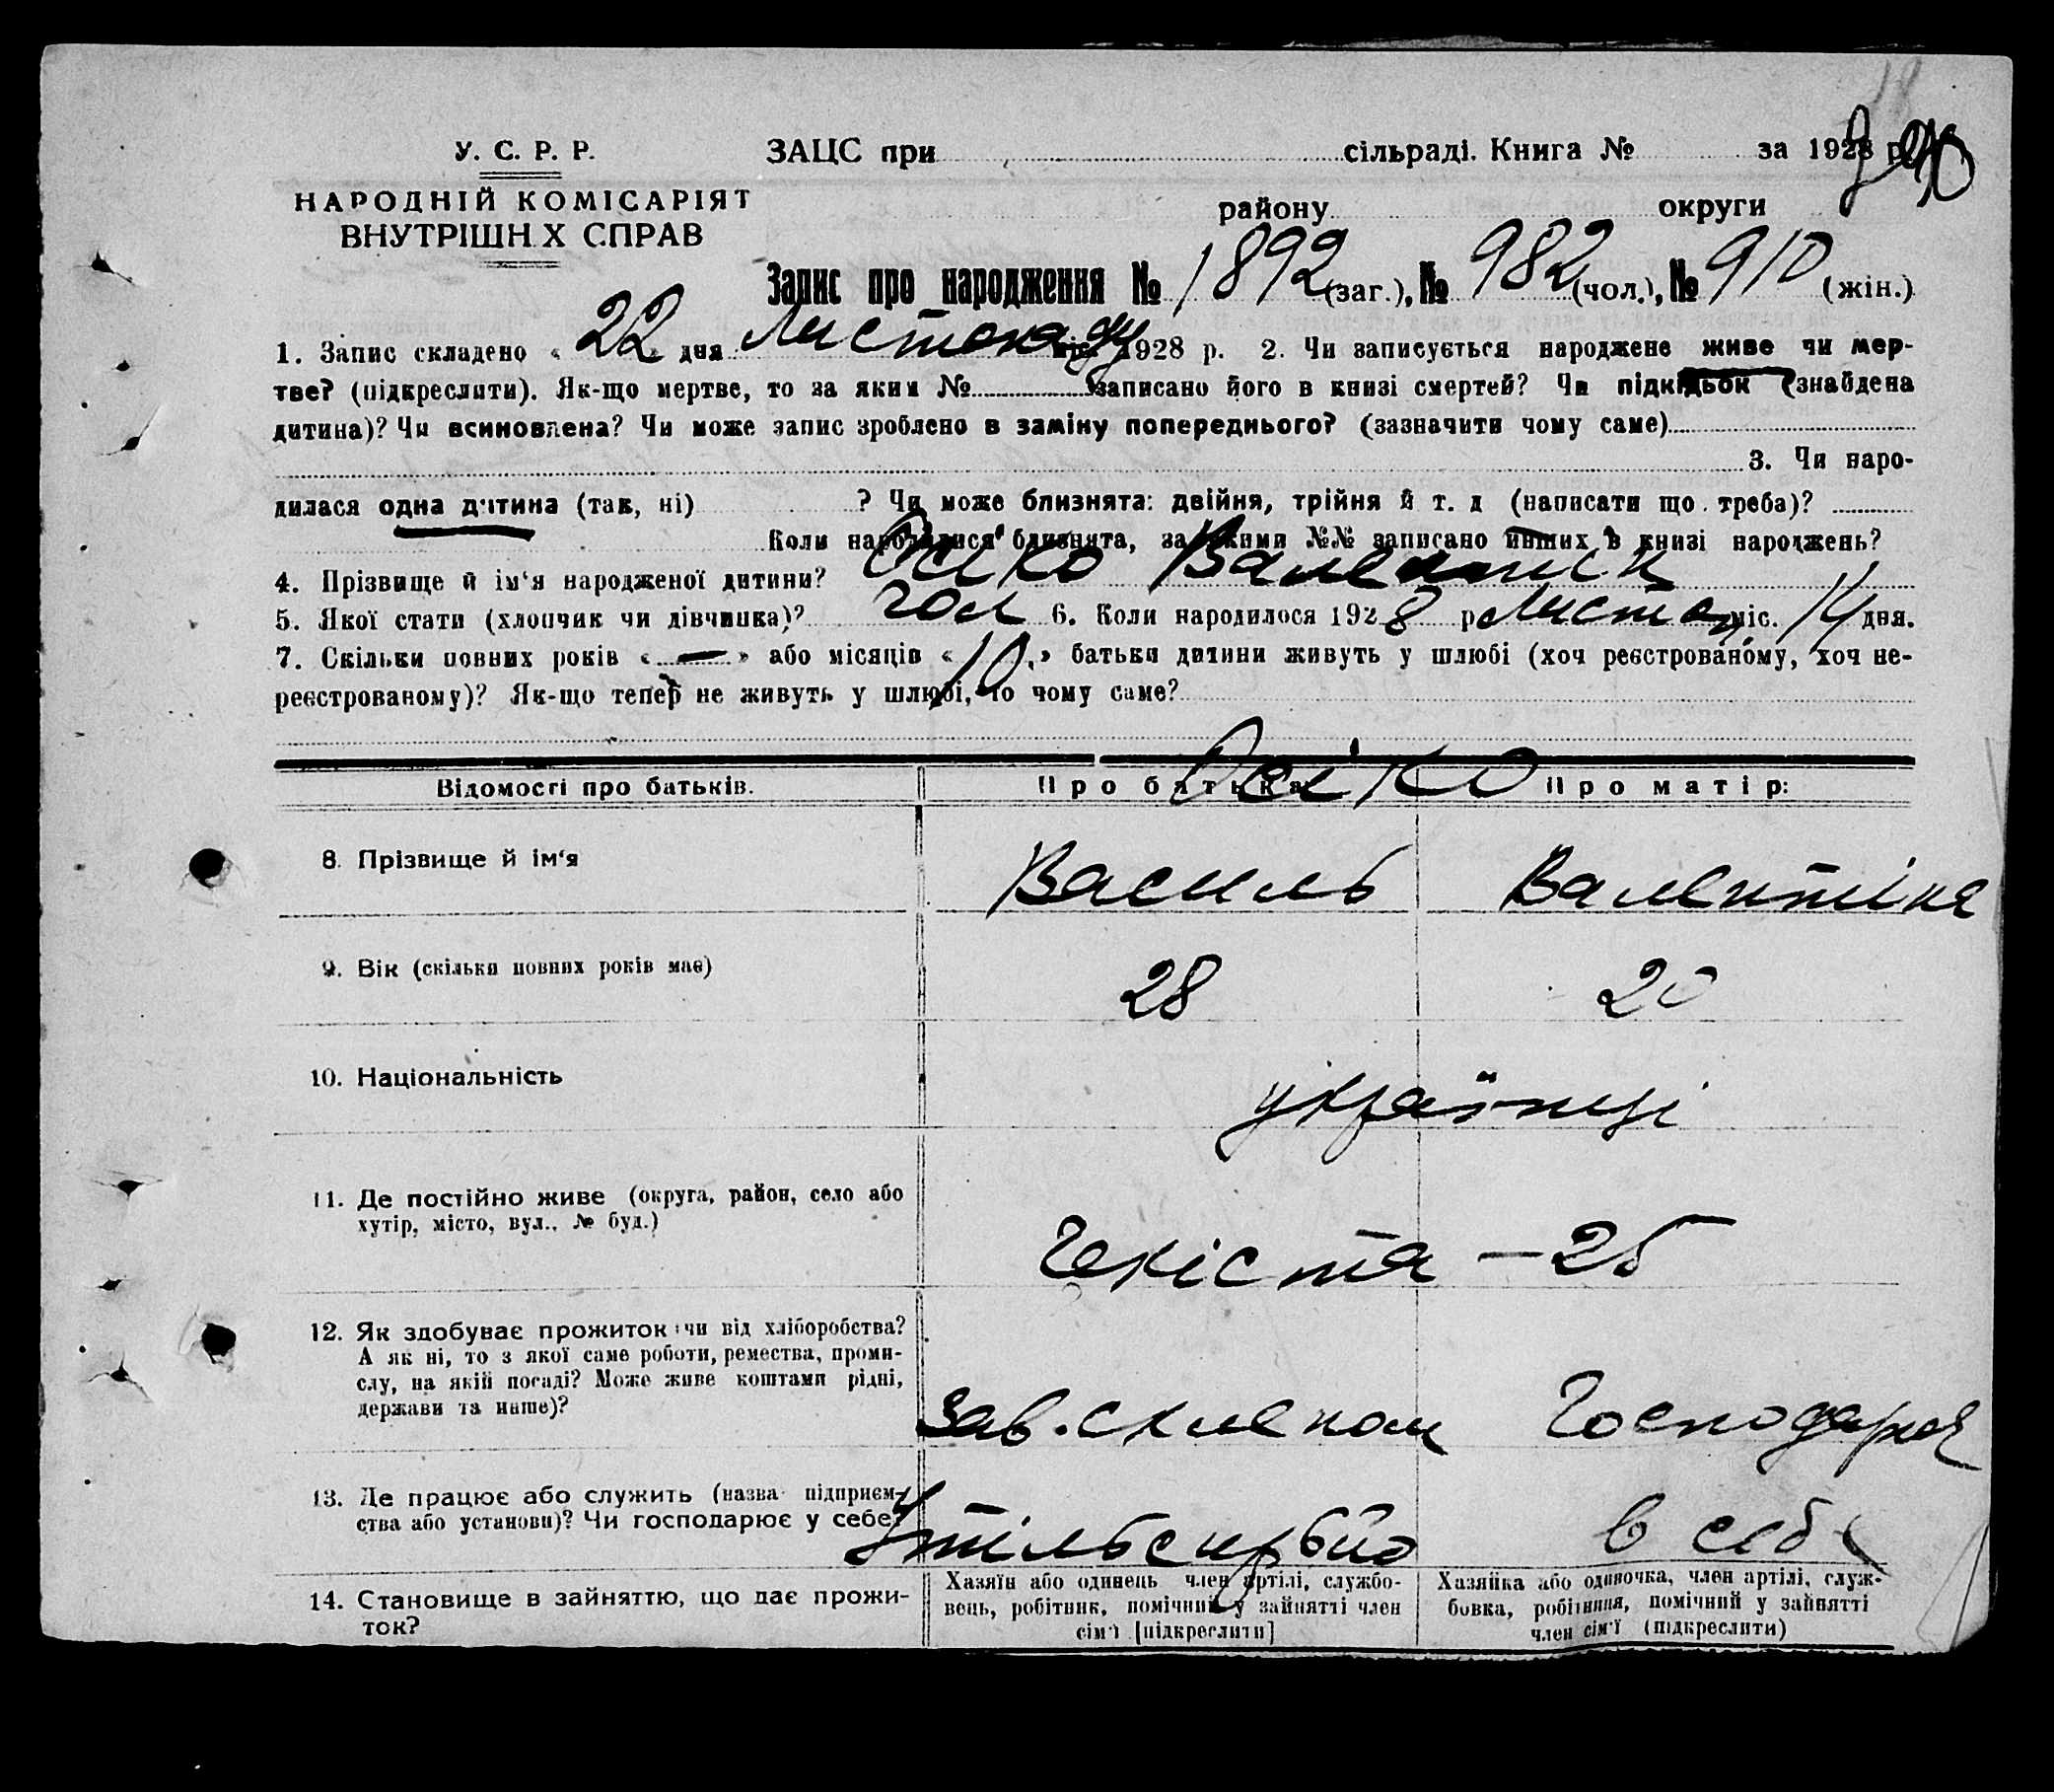 У. С. Р. Р.
ЗАЦС при сільраді. Книга № за 1928 р.
НАРОДНІЙ КОМІСАРІЯТ
ВНУТРІШН Х СПРАВ
району округи
Запис про народження № 1892 (заг.), № 982 (чол.), № 910 (жін.)
1. Запис складено « 22 » дня Листопаду 1928 р. 2. Чи записується народжене живе чи мер-
тве? (підкреслити). Як-що мертве, то за яким № записано його в книзі смертей? Чи підкідьок (знайдена
дитина)? Чи всиновлена? Чи може запис зроблено в заміну попереднього? (зазначити чому саме)
3. Чи наро-
дилася одна дитина (так, ні) ? Чи може близнята: двійня, трійня й т. д (написати що треба)?
Коли народилися близнята, за якими №№ записано инших в книзі народжень?
4. Прізвище й ім‘я народженої дитини? Осіко Валентин
5. Якої стати (хлопчик чи дівчинка)? чол 6. Коли народилося 1928 р Листоп міс. 14 дня.
7. Скільки повних років « — » або місяців « 10 » батьки дитини живуть у шлюбі (хоч реєстрованому, хоч не-
реєстрованому)? Як-що тепер не живуть у шлюбі, то чому саме?
Осіко
Відомості про батьків. Про батька Про матір:
8. Прізвище й ім‘я Василь Валентіна
9. Вік (скільки повних років має) 28 20
10. Національність українці
11. Де постійно живе (округа, район, село або
хутір, місто, вул., № буд.)
Чекіста — 25
12. Як здобуває прожиток: чи від хліборобства?
А як ні, то з якої саме роботи, ремества, проми-
слу, на якій посаді? Може живе коштами рідні,
держави та инше)?
Зав. склепом Господарює
13. Де працює або служить (назва підприєм-
ства або установи)? Чи господарює у себе?
в себе
14. Становище в зайняттю, що дає прожи-
ток?
Хазяїн або одинець член артілі, службо-
вець, робітник, помічний у зайнятті член
сім‘ї [підкреслити]
Хазяйка або одиночка, член артілі, служ-
бовка, робітниця, помічний у зайнятті
член сім‘ї (підкреслити)